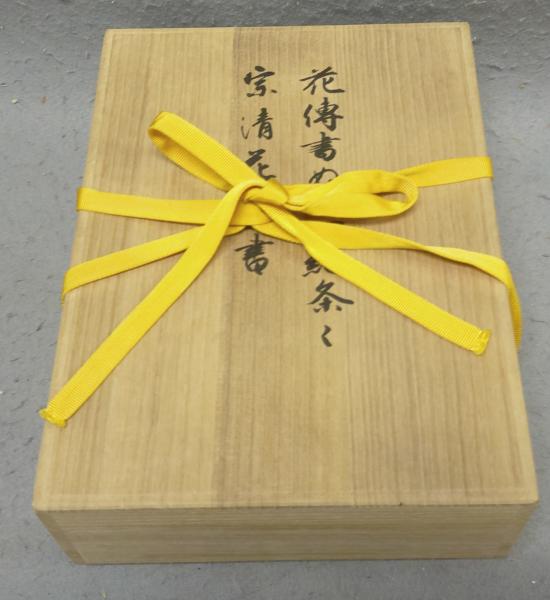 花傳書ぬ条〻
宗清花書